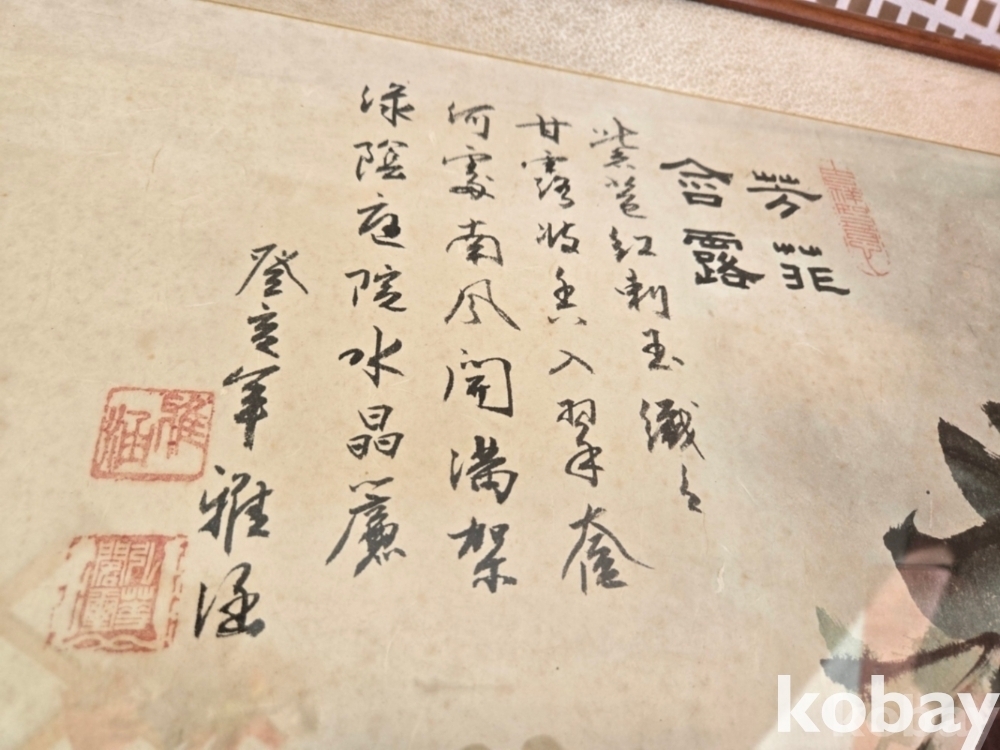 芳菲
含露
紫苞紅刺玉纖纖
甘露凝香入翠奩
何處南風開滿架
綠陰庭院水晶簾
癸亥年 雅涵
雅涵
kobay